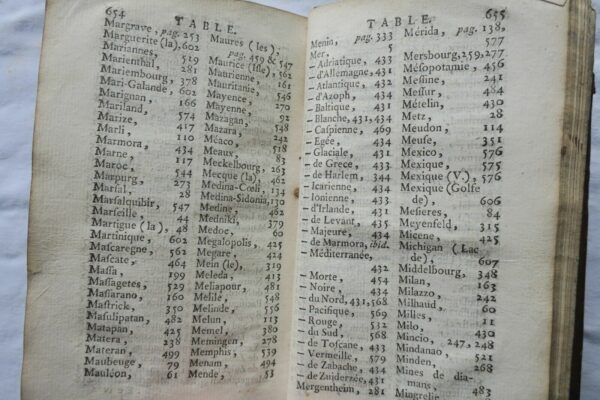 654
TABLE.
Margrave, pag. 253
Marguerite (la), 602
Mariannes, 519
Marienthal, 281
Mariembourg, 378
Mari-Galande, 602
Marignan, 166
Mariland, 574
Marize, 417
Marli, 110
Marmora, 434
Marne, 117
Maroc, 273
Marpurg, 28
Marsal, 547
Marsalquibir, 44
Marseille, 48
Martigue (la), 602
Martinique, 562
Mascaregne, 464
Mascate, 199
Massa, 529
Massagetes, 160
Massarano, 350
Mastrick, 482
Masulipatan, 425
Matapan, 238
Matera, 499
Materan, 79
Maubeuge, 61
Mauléon,
Maures (les), pag. 459 & 547
Maurice (Isle), 562
Maurienne, 161
Mauritanie, 546
Mayence, 270
Mayenne, 92
Mazagan, 548
Mazara, 242
Méaco, 518
Meaux, 83
Meckelbourg, 263
Mecque (la), 462
Medina-Cœli, 134
Medina-Sidonia, 130
Medine, 462
Medniki, 379
Medoc, 60
Megalopolis, 425
Megare, 424
Mein (le), 319
Meleda, 413
Meliapour, 481
Melile, 548
Melinde, 556
Melun, 113
Memel, 380
Memingen, 278
Memphis, 539
Menam, 499
Mende, 53
TABLE.
655
Menin, pag. 333
Mer, 5
– Adriatique, 433
– d'Allemagne, 431
– Atlantique, 432
– d'Azoph, 434
– Baltique, 431
– Blanche, 431, 434
– Caspienne, 469
– Egée, 434
– Glaciale, 431
– de Grece, 433
– de Harlem, 344
– Icarienne, 434
– Ionienne, 433
– d'Irlande, 431
– de Levant, 435
– Majeure, 434
– de Marmora, ibid.
– Méditerranée,
432
– Morte, 454
– Noire, 434
– du Nord, 431, 568
– Pacifique, 569
– Rouge, 532
– du Sud, 568
– de Toscane, 433
– Vermeille, 579
– de Zabache, 434
– de Zuiderzée, 431
Mergentheim, 281
Mérida, pag. 138,
577
Mersbourg, 259, 277
Mésopotamie, 456
Messine, 241
Messur, 484
Mételin, 430
Metz, 28
Meudon, 114
Meuse, 351
Mexico, 576
Mexique, 575
Mexique (V.), 576
Mexique (Golfe
de), 606
Mesieres, 84
Meyenfeld, 315
Micene, 425
Michigan (Lac
de), 607
Middelbourg, 348
Milan, 163
Milazzo, 242
Milhaud, 60
Milles, 11
Milo, 430
Mincio, 247, 248
Mindanao, 520
Minden, 268
Mines de dia-
mans, 483
Mingrelie